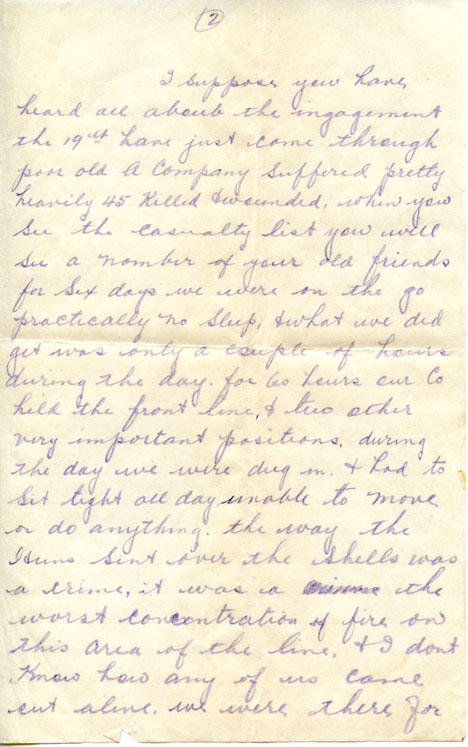 2
I suppose you have
heard all about the ingagement
the 19th have just come through
poor old A Company Suffered pretty
heavily 45 Killed & wounded, when you
See the casualty list you will
See a nomber of your old friends
for Six days we were on the go
practically no Sleep, & what we did
get was only a couple of hours
during the day. for 60 hours our Co
held the front line, & two other
very important positions, during
the day we were dug in. & had to
Sit tight all day unable to move
or do anything. the way the
Huns Sent over the Shells was
a crime, it was a the
worst concentration of fire on
this area of the line, & I dont
Know how any of us came
out alive. we were there for